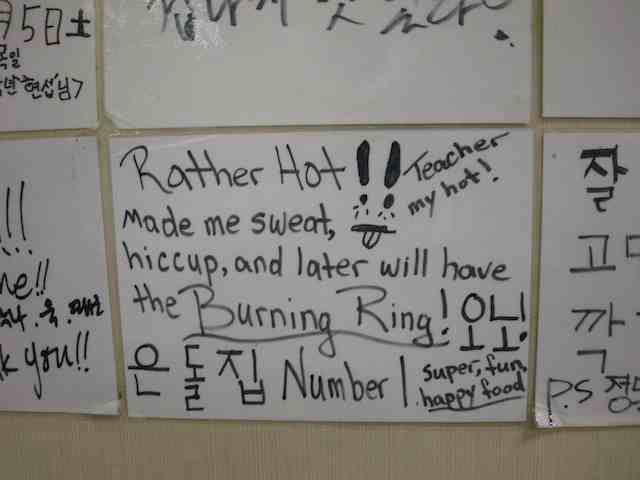 Rather Hot!!
Teacher
my hot!
made me sweat,
hiccup, and later will have
the Burning Ring!
은 돌 집 Number 1
super, fun,
happy food
5日土
목일
현섭님7
!!!
me!!
k you!!
잘
고
까
P.S